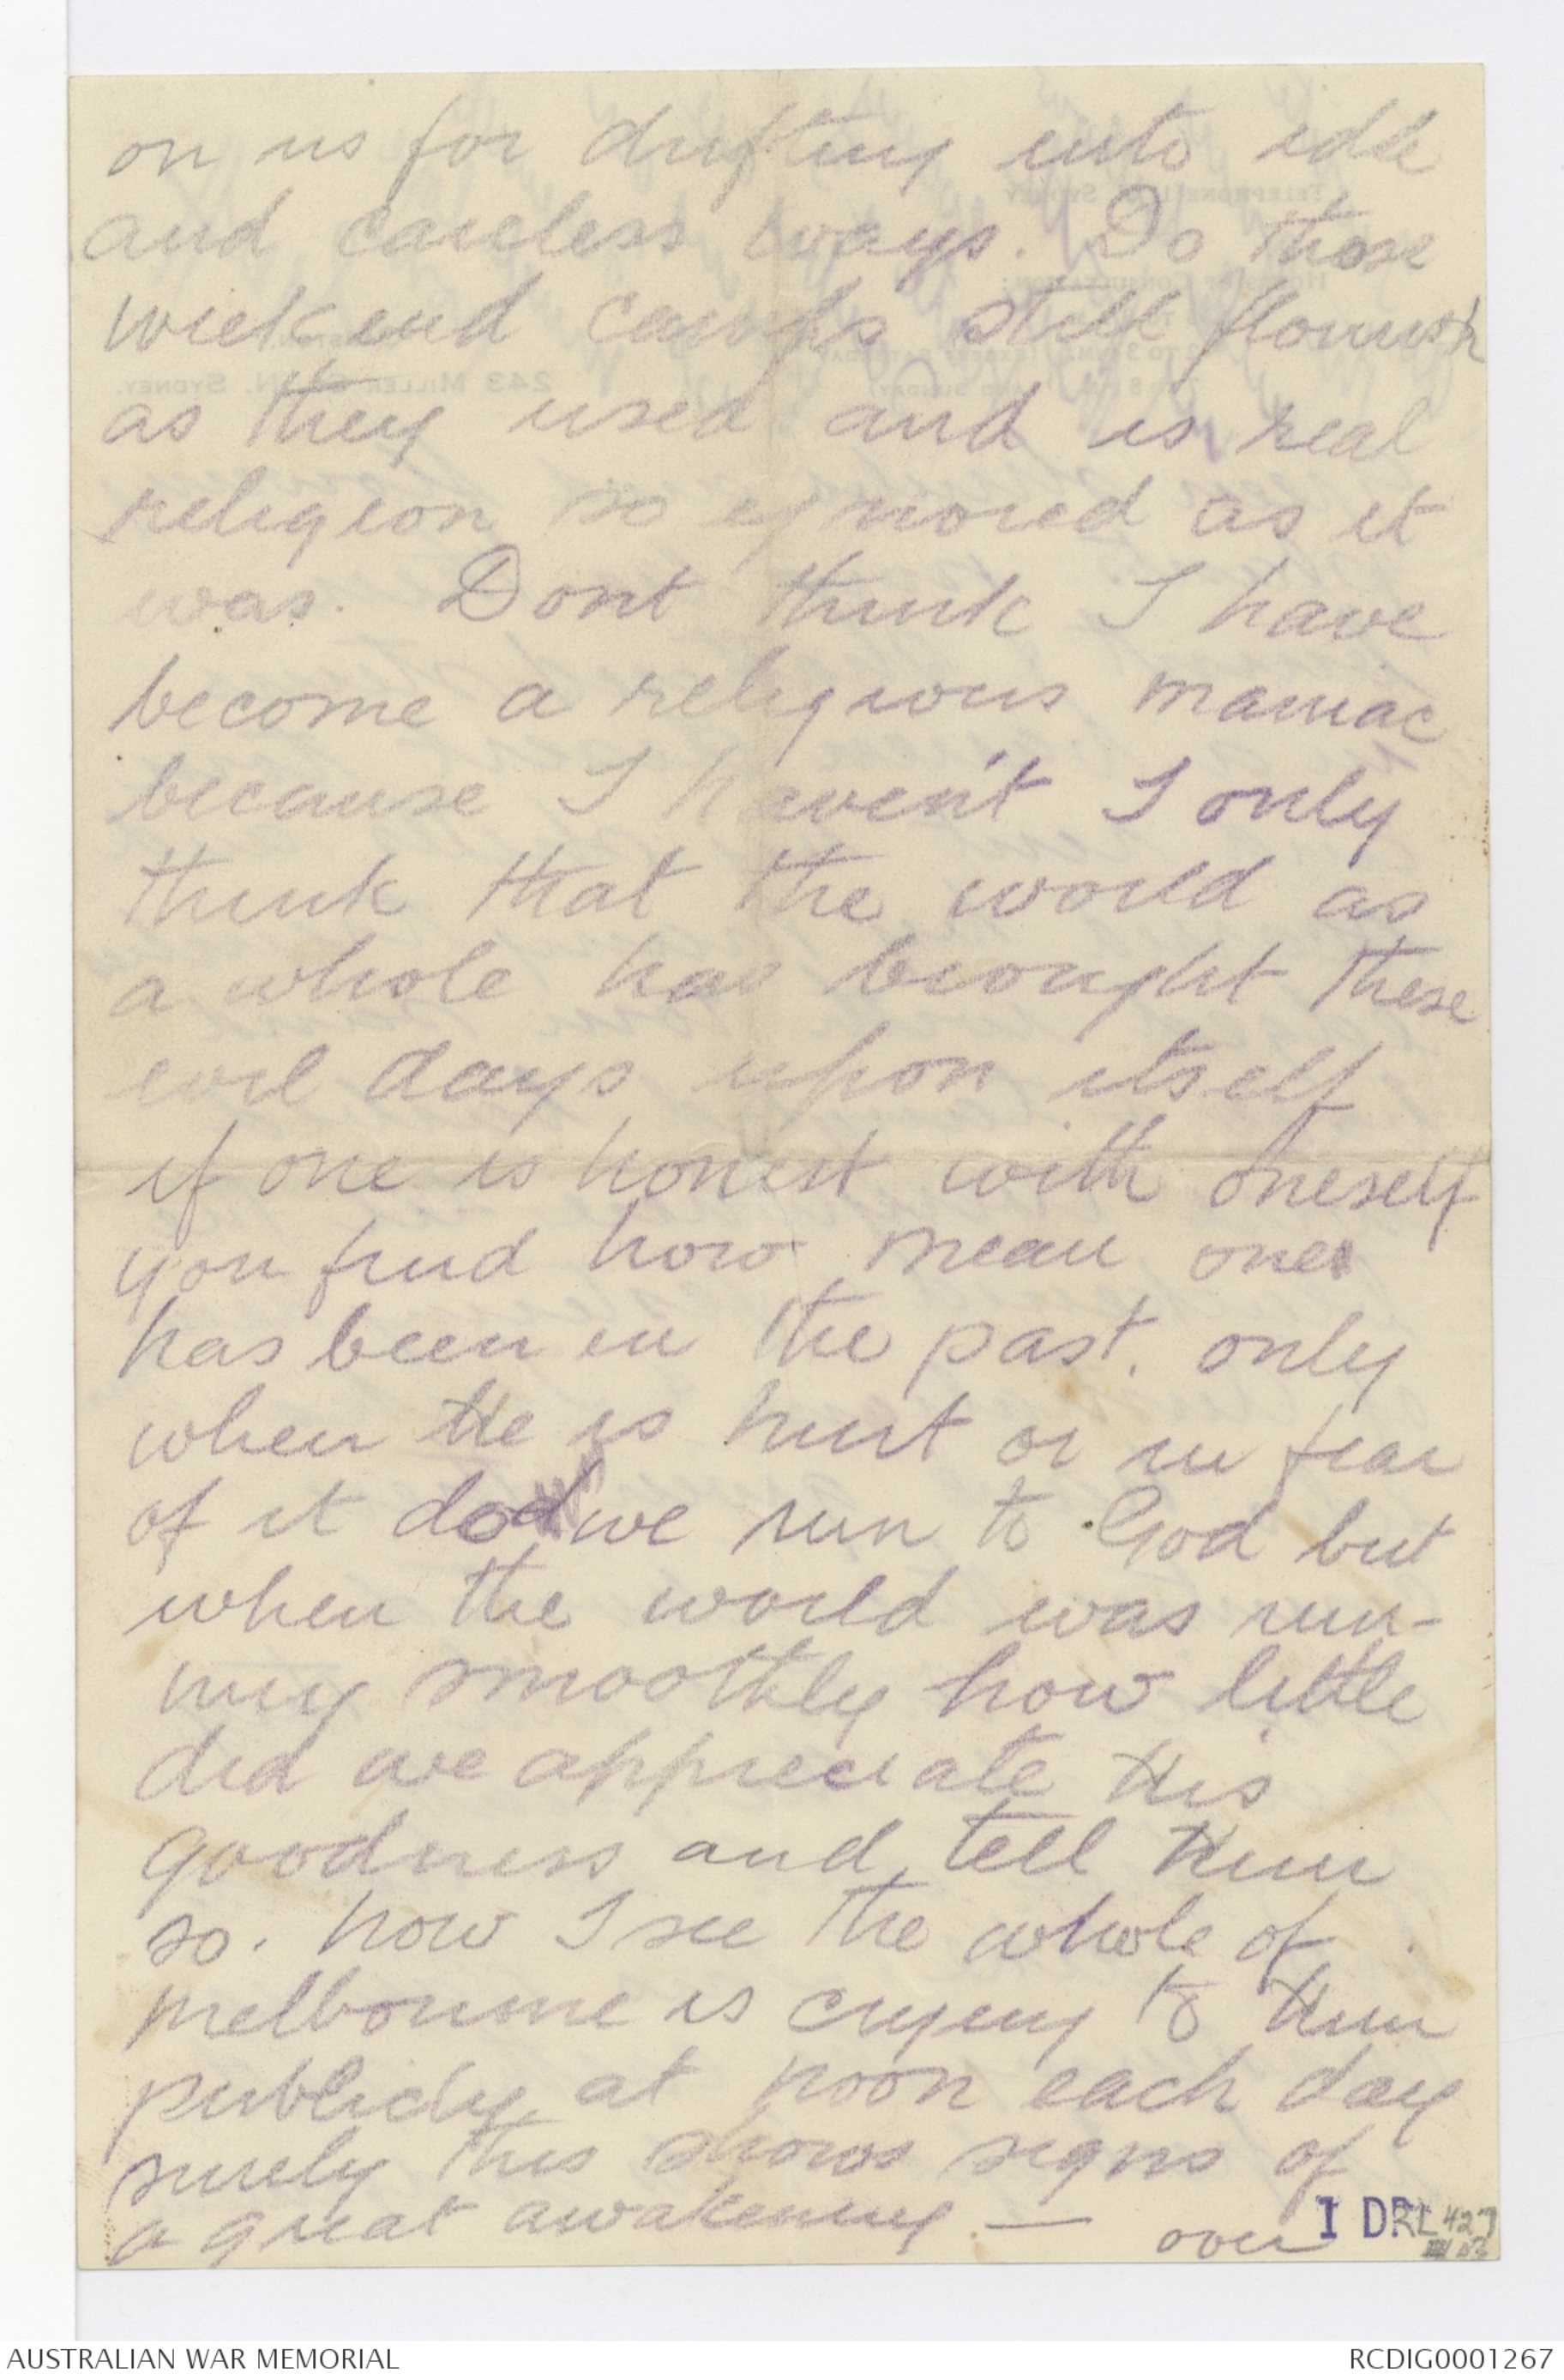 on us for drifting into idle
and careless ways. Do those
week end camps still flourish
as they used and is real
religion so ignored as it
was. Dont think I have
become a religious maniac
because I haven't I only
think that the world as
a whole has brought these
evil days upon itself
if one is honest with oneself
you find how mean one
has been in the past. only
when He is hurt or in fear
of it do we run to God but
when the world was run-
ning smoothly how little
did we appreciate His
goodness and tell Him
so. Now I see the whole of
Melbourne is crying to Him
publicly at noon each day
surely this shows signs of
a great awakening —
over
1 DRL 427
AUSTRALIAN WAR MEMORIAL
RCDIG0001267